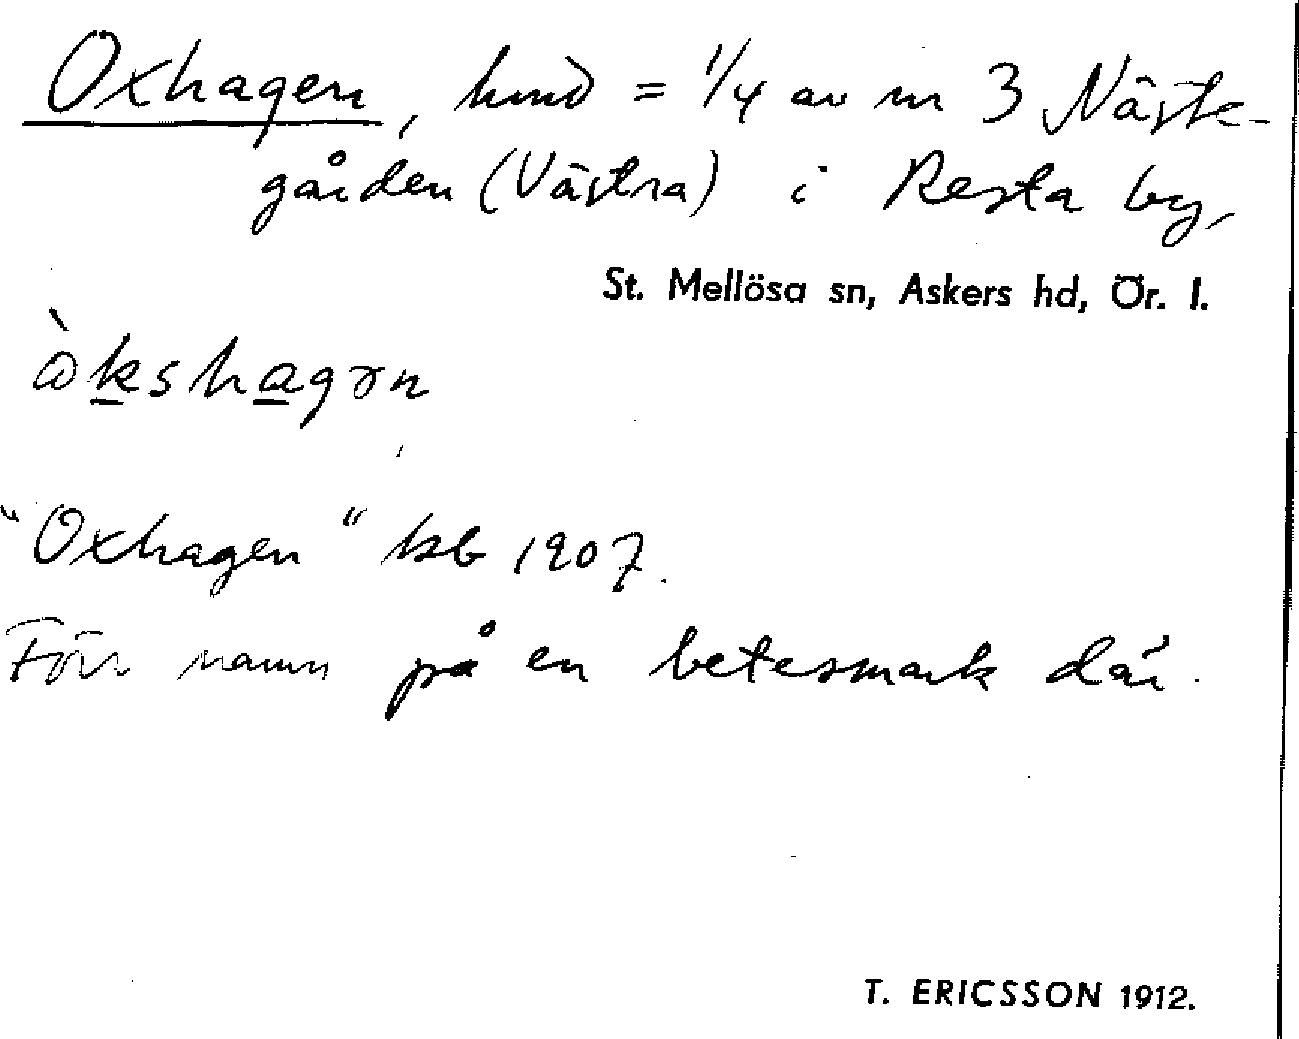 Oxhagen, hmd = 1/4 av nr 3 Näste-
gården (Västra) i Resta by,
St. Mellösa sn, Askers hd, Ör. l.
"Oxhagen" kb 1907.
Förr namn på en betesmark där.
T. ERICSSON 1912.